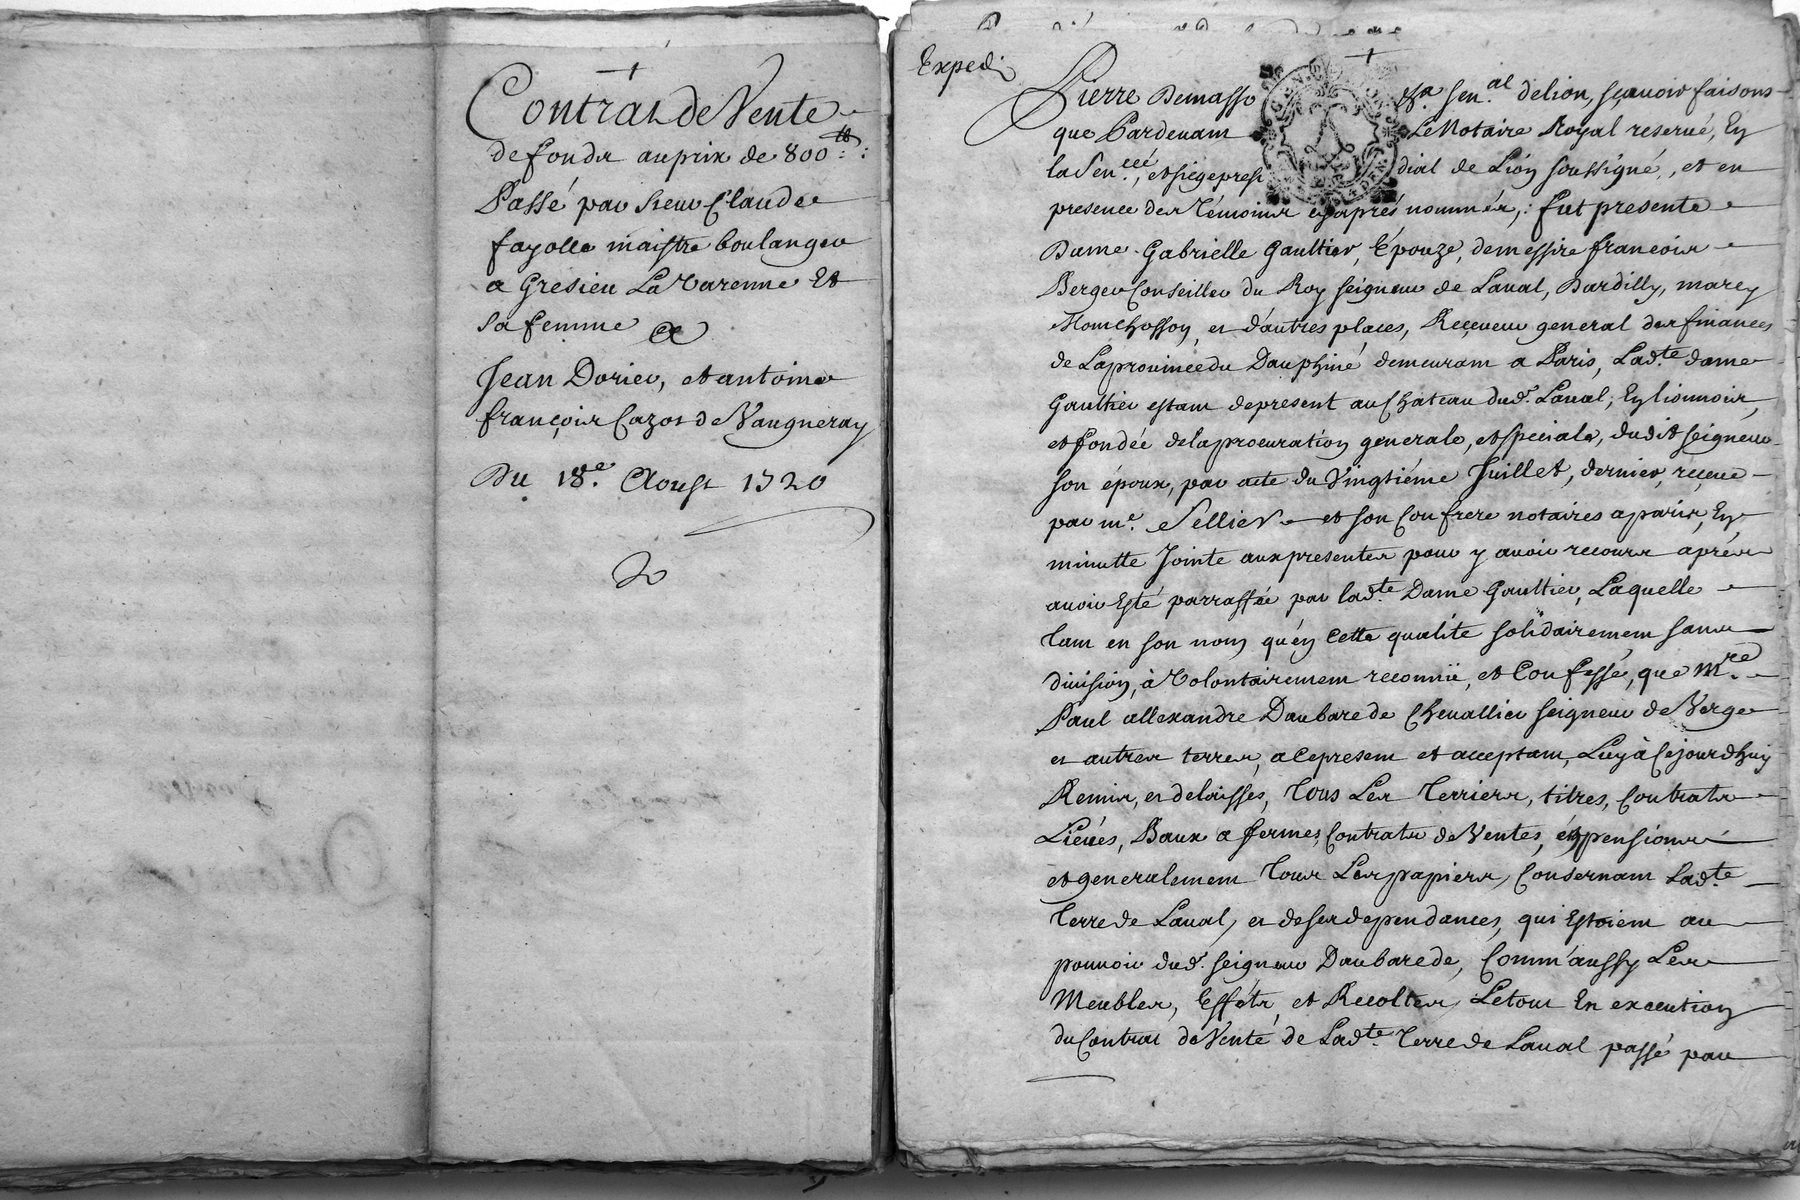 Contrat de Vente
de fonds au prix de 800 ₶
Passé par sieur Claude
fayolle maistre boulanger
a Gresieu La Varenne Et
sa femme a
Jean Dorier, et antoine
françois Cazot de Vaugneray
Du 18e. Aoust 1720
Expedi
Pierre Demasso sen.al delion, sçauoir faisons
que Pardeuant Le Notaire Royal reserué, Ey
la Sen.cée, et siege presi dial de Lioy soussigné, et en
presence des Témoins cy aprés nommés, : fut presente
Dame Gabrielle Gaultier, Épouze, de messire francois
Berger Conseiller du Roy seigneur de Laual, Dardilly, marcy
et d'autres places, Reçeueur general des finances
de La prouince du Dauphiné demeurant a Paris, Lad.te dame
Gaultier estant de present au Chateau dud. Laual, Ey lionnois,
et fondée de la procuratioy generale, et speciale, dudit seigneur
son époux, par acte du Vingtiéme Juillet, dernier, reçeue
par me. Sellier et son Confrere notaires a paris, Ey
minutte Jointe aux presentes pour y auoir recours aprés
auoir Esté parraffée par lad.te Dame Gaultier, Laquelle
Tant en son nom qu'ey Cette qualité solidairement sans
diuisioy, à Volontairement reconnü, et Confessé, que Mre.
Paul allexandre Daubarede Cheuallier seigneur de Verge
et autres terres, a ce present et acceptant, Luy à Cejourdhuy
Remis, et delaisses, Tous Les Terriers, titres, Contrats
Lieués, Baux a fermes, Contrats de Ventes, pensions
et generalement Tous Les papiers, Consernant Lad.te
Terre de Laual, et de ses dependances, qui Estoient au
pouuoir dud. seigneur Daubarede, Comm'aussy Les
Meubles, Effets, et Recoltes, Le tout En executioy
du Contrat de Vente de Lad.te Terre de Laual passé par